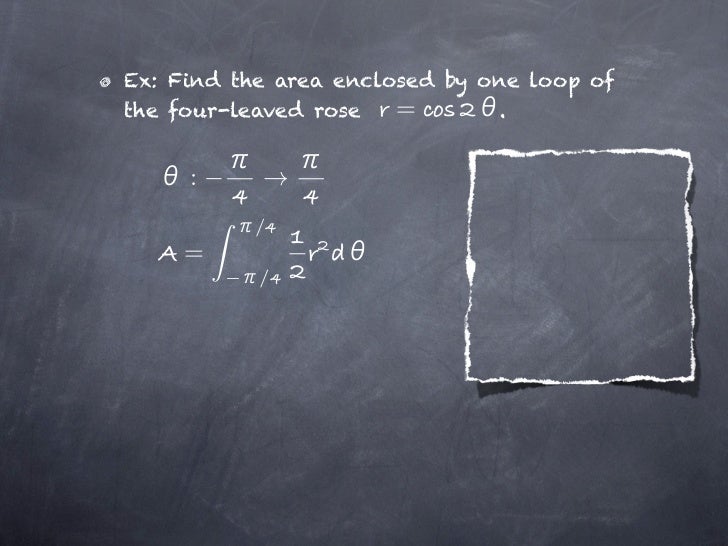 Ex: Find the area enclosed by one loop of
the four-leaved rose r = cos 2 θ.
θ : − π/4 → π/4
A = ∫_{−π/4}^{π/4} 1/2 r² d θ